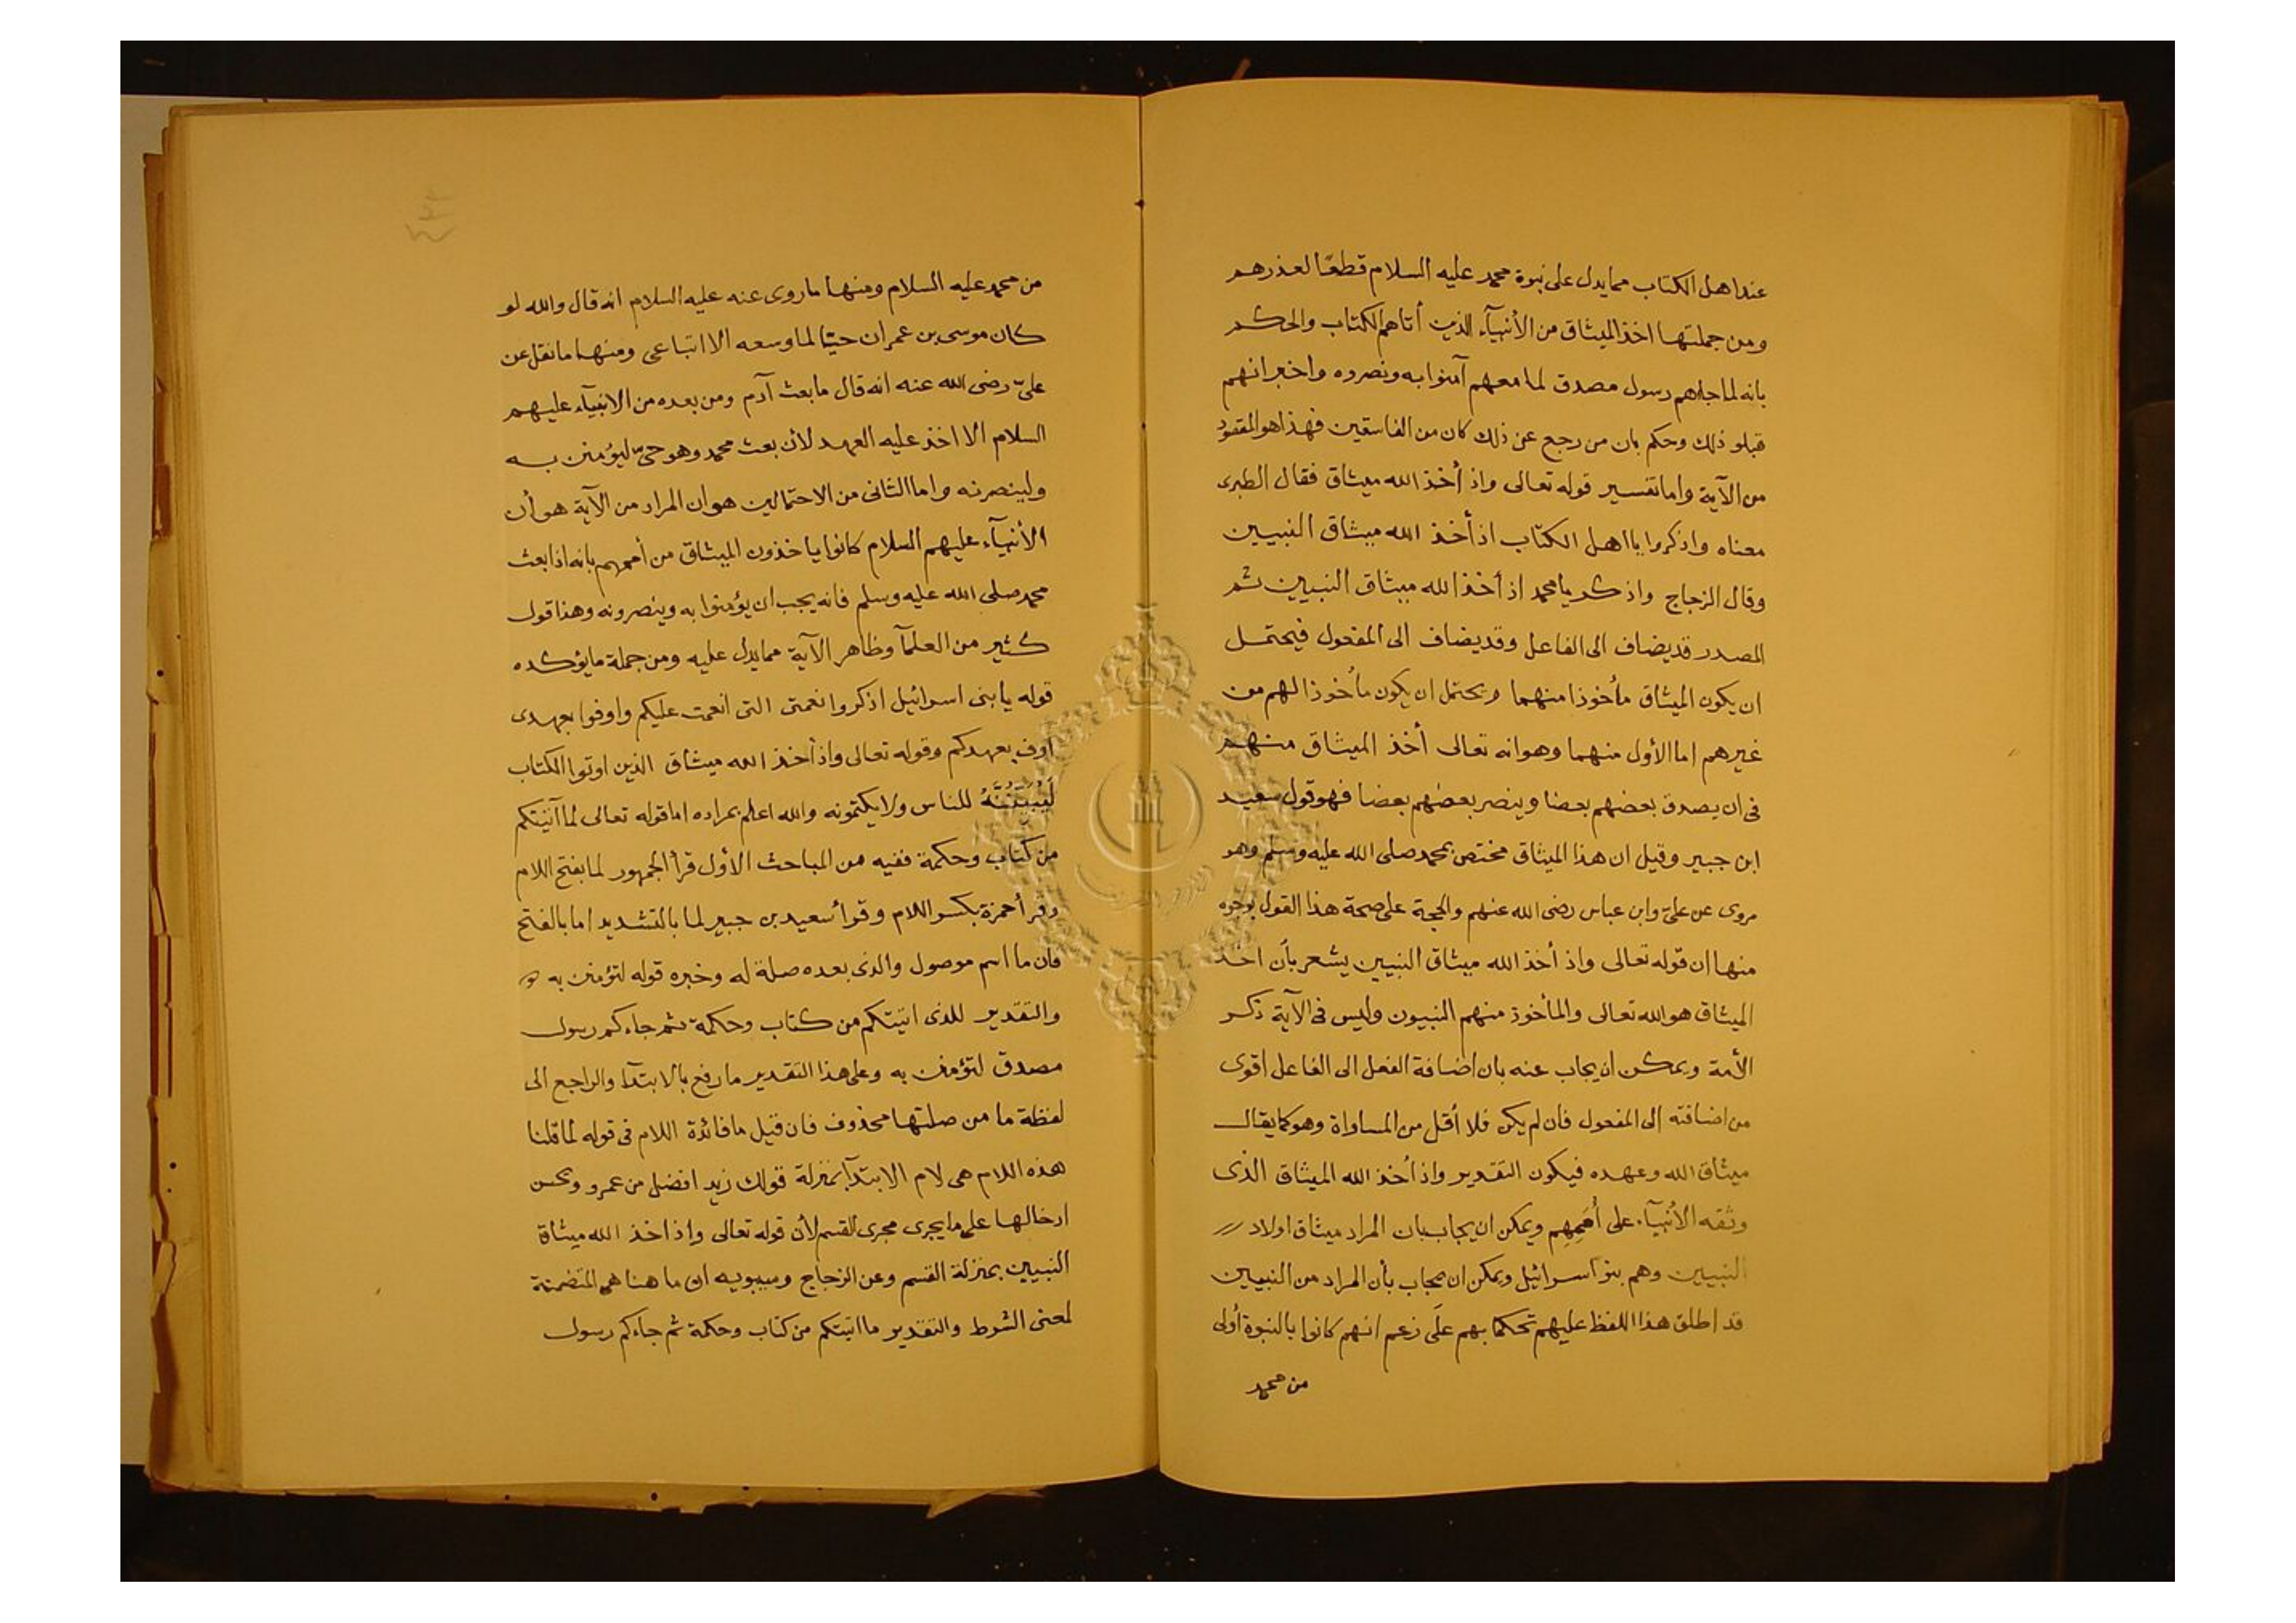 عند اهل الكتاب مما يدل على نبوة محمد عليه السلام قطعًا لعذرهم
ومن جملتها اخذ الميثاق من الأنبيآء الذين أتاهم الكتاب والحكم
بانه لما جاءهم رسول مصدق لما معهم آمنوا به ونصروه واخبر انهم
قبلو ذلك وحكم بان من رجع عن ذلك كان من الفاسقين فهذا هو المقصود
من الآية واما تفسير قوله تعالى واذ أخذ الله ميثاق فقال الطبرى
معناه واذكروا يا اهل الكتاب اذ أخذ الله ميثاق النبيين
وقال الزجاج واذكر يا محمد اذ أخذ الله ميثاق النبيين ثم
المصدر قد يضاف الى الفاعل وقد يضاف الى المفعول فيحتمل
ان يكون الميثاق مأخوذا منهما ويحتمل ان يكون مأخوذا لهم من
غيرهم اما الأول منهما وهو انه تعالى أخذ الميثاق منهم
فى ان يصدق بعضهم بعضا وينصر بعضهم بعضا فهو قول سعيد
ابن جبير وقيل ان هذا الميثاق مختص بمحمد صلى الله عليه وسلم وهو
مروى عن علىّ وابن عباس رضى الله عنهم والحجة على صحة هذا القول بوجوه
منها ان قوله تعالى واذ أخذ الله ميثاق النبيين يشعر بأن اخذ
الميثاق هو الله تعالى والمأخوذ منهم النبيون وليس فى الآية ذكر
الأمة ويمكن ان يجاب عنه بان اضافة الفعل الى الفاعل اقوى
من اضافته الى المفعول فان لم يكن فلا أقل من المساواة وهو كما يقال
ميثاق الله وعهده فيكون التقدير واذ أخذ الله الميثاق الذى
وثقه الأنبيآء على أُمَمِهِم ويمكن ان يجاب بان المراد ميثاق اولاد
النبيين وهم بنو اسرائيل ويمكن ان يجاب بأن المراد من النبيين
قد اطلق هذا اللفظ عليهم تحكما بهم على زعم انهم كانوا بالنبوة أولى
من محمد
من محمد عليه السلام ومنها ما روى عنه عليه السلام انه قال والله لو
كان موسى بن عمران حيّا لما وسعه الا اتباعى ومنها ما نقل عن
علىّ رضى الله عنه انه قال ما بعث آدم ومن بعده من الانبيآء عليهم
السلام الا اخذ عليه العهد لأن بعث محمد وهو حىّ ليؤمنن به
ولينصرنه واما الثانى من الاحتمالين هو ان المراد من الآية هو أن
الأنبيآء عليهم السلام كانوا ياخذون الميثاق من أممهم بانه اذا بعث
محمد صلى الله عليه وسلم فانه يجب ان يؤمنوا به وينصرونه وهذا قول
كثير من العلمآ وظاهر الآية مما يدل عليه ومن جملة ما يؤكده
قوله يا بنى اسرائيل اذكروا نعمتى التى انعمت عليكم واوفوا بعهدى
اوف بعهدكم وقوله تعالى واذ أخذ الله ميثاق الذين اوتوا الكتاب
لَيُبَيِّنُنَّهُ للناس ولا يكتمونه والله اعلم بمراده اما قوله تعالى لما آتيتكم
من كتاب وحكمة ففيه من المباحث الأول قرأ الجمهور لما بفتح اللام
وقرأ حمزة بكسر اللام وقرأ سعيد بن جبير لما بالتشديد اما بالفتح
فان ما اسم موصول والذى بعده صلة له وخبره قوله لتؤمنن به
والتقدير للذى اتيتكم من كتاب وحكمة ثم جاءكم رسول
مصدق لتؤمنن به وعلى هذا التقدير ما رفع بالابتدآ والراجع الى
لفظة ما من صلتها محذوف فان قيل ما فائدة اللام فى قوله لما قلنا
هذه اللام هى لام الابتدآ بمنزلة قولك زيد افضل من عمرو ويحسن
ادخالها على ما يجرى مجرى القسم لأن قوله تعالى واذ اخذ الله ميثاق
النبيين بمنزلة القسم وعن الزجاج وسيبويه ان ما هنا هى المتضمنة
لمعنى الشرط والتقدير ما اتيتكم من كتاب وحكمة ثم جاءكم رسول